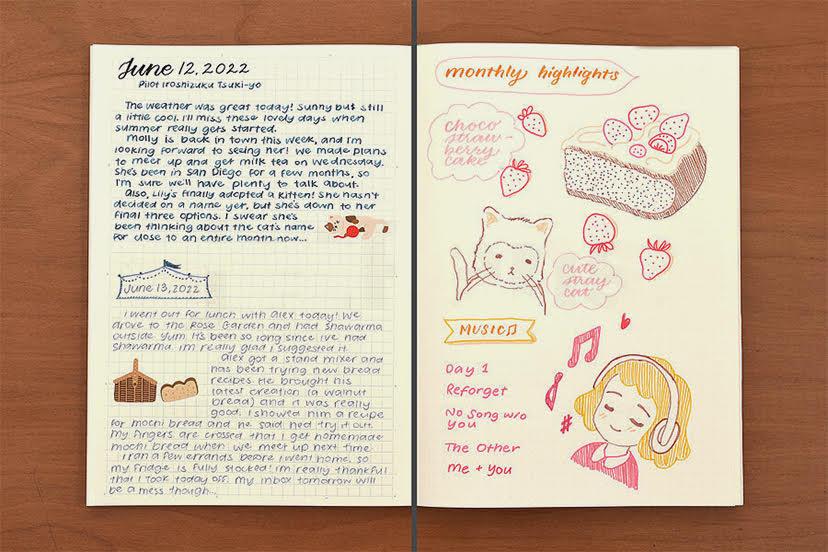 June 12, 2022
Pilot Iroshizuku Tsuki-yo
The weather was great today! Sunny but still
a little cool. I'll miss these lovely days when
summer really gets started.
Molly is back in town this week, and I'm
looking forward to seeing her! We made plans
to meet up and get milk tea on Wednesday.
She's been in San Diego for a few months, so
I'm sure we'll have plenty to talk about.
Also, Lily's finally adopted a kitten! She hasn't
decided on a name yet, but she's down to her
final three options. I swear she's
been thinking about the cat's name
for close to an entire month now...
June 13, 2022
I went out for lunch with Alex today! We
drove to the Rose Garden and had shawarma
outside. Yum. It's been so long since I've had
shawarma. I'm really glad I suggested it.
Alex got a stand mixer and
has been trying new bread
recipes. He brought his
latest creation (a walnut
bread) and it was really
good. I showed him a recipe
for mochi bread and he said he'd try it out.
My fingers are crossed that I get homemade
mochi bread when we meet up next time.
I ran a few errands before I went home, so
my fridge is fully stocked! I'm really thankful
that I took today off. My inbox tomorrow will
be a mess though...
monthly highlights
choco
straw-
berry
cake
cute
stray
cat
MUSIC♫
Day 1
Reforget
No Song w/o
you
The Other
Me + You